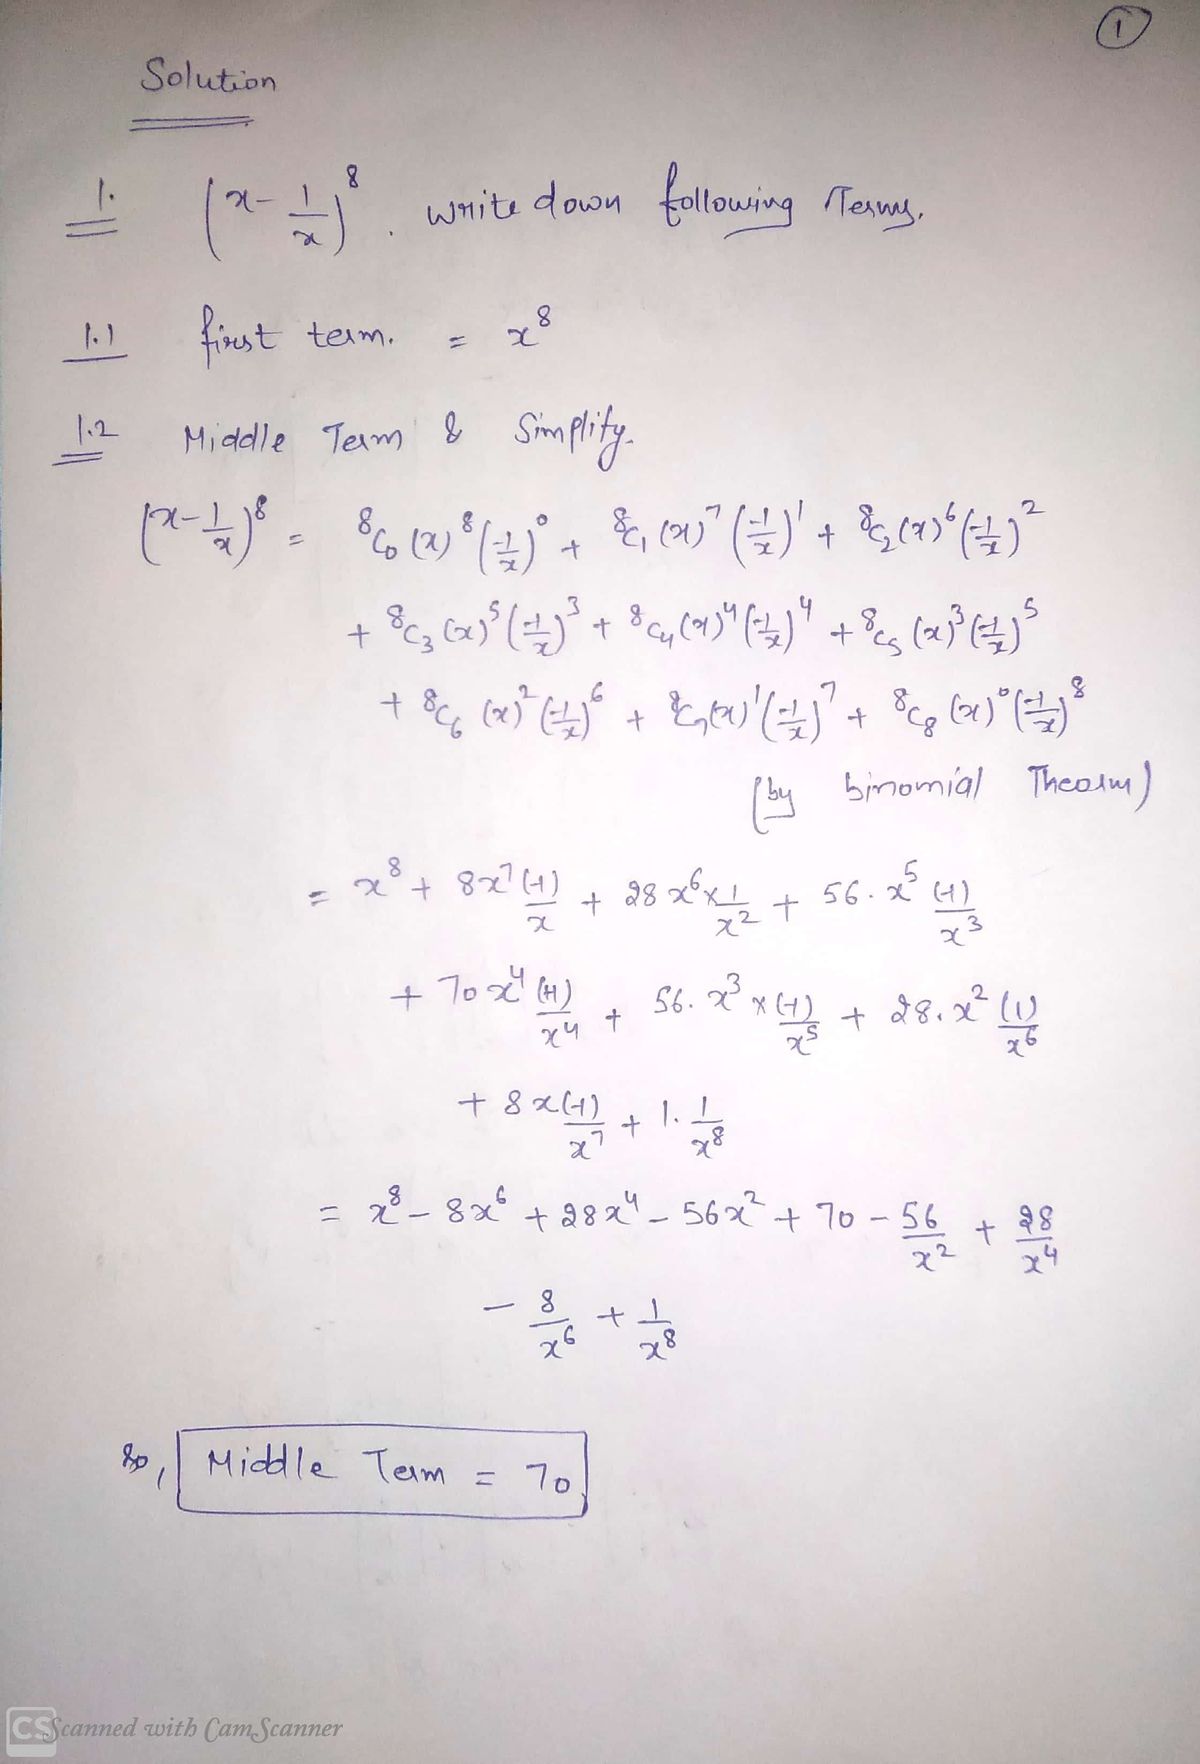 1
Solution
1. (x - 1/x)^8. write down following Terms.
1.1 first term. = x^8
1.2 Middle Term & Simplify.
(x - 1/x)^8 = 8C0 (x)^8 (-1/x)^0 + 8C1 (x)^7 (-1/x)^1 + 8C2 (x)^6 (-1/x)^2
+ 8C3 (x)^5 (-1/x)^3 + 8C4 (x)^4 (-1/x)^4 + 8C5 (x)^3 (-1/x)^5
+ 8C6 (x)^2 (-1/x)^6 + 8C7 (x)^1 (-1/x)^7 + 8C8 (x)^0 (-1/x)^8
(by binomial Theorm)
= x^8 + 8x^7 (-1)/x + 28 x^6 × 1/x^2 + 56. x^5 (-1)/x^3
+ 70 x^4 (+1)/x^4 + 56. x^3 × (-1)/x^5 + 28. x^2 (1)/x^6
+ 8x (-1)/x^7 + 1. 1/x^8
= x^8 - 8x^6 + 28x^4 - 56x^2 + 70 - 56/x^2 + 28/x^4
- 8/x^6 + 1/x^8
So, Middle Term = 70
CS Scanned with CamScanner